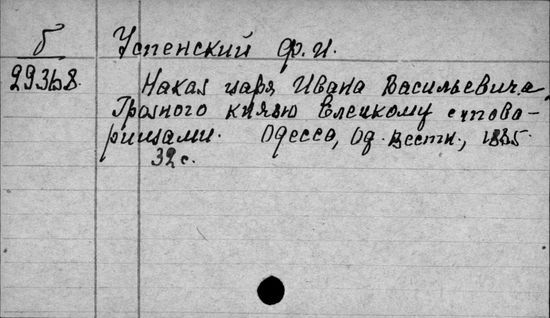 б
Успенский Ф. И.
29368.
Наказ царя Ивана Васильевича
Грозного князю Елецкому с това-
рищами. Одесса, Од. вестн., 1885.
32 с.